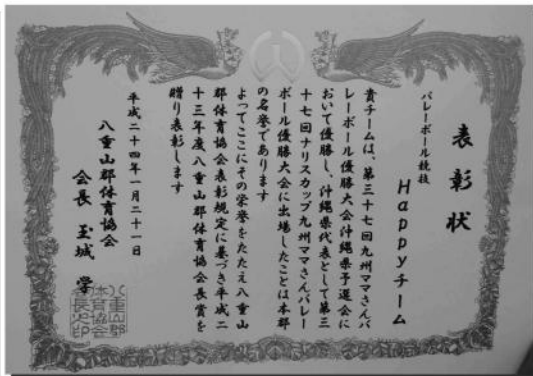 表彰状
バレーボール競技
Happyチーム
貴チームは、第三十七回九州ママさんバ
レーボール優勝大会沖縄県予選会に
おいて優勝し、沖縄県代表として第三
十七回ナリスカップ九州ママさんバレー
ボール優勝大会に出場したことは本郡
の名誉であります
よってここにその栄誉をたたえ八重山
郡体育協会表彰規定に基づき平成二
十三年度八重山郡体育協会長賞を
贈り表彰します
平成二十四年一月二十一日
八重山郡体育協会
会長 玉城 学
八重山郡
体育協会
長之印